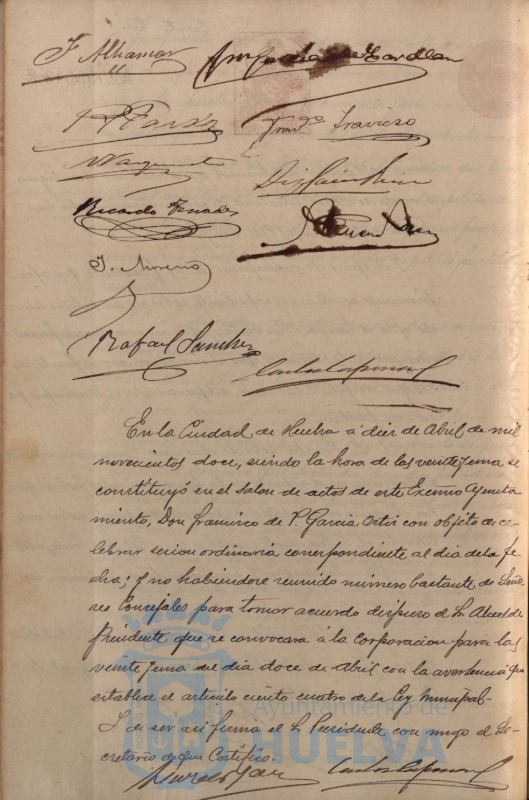 F. Alhamar
Franco Travieso
Ricardo Terrades
J. Moreno
Rafael Sanchez
En la Ciudad de Huelva á diez de Abril de mil
novecientos doce, siendo la hora de las veinte y una se
constituyó en el Salon de actos de este Excmo Ayunta
miento, Don Francisco de P. Garcia Ortiz con objeto de ce-
lebrar sesion ordinaria correspondiente al dia de la fe-
cha; y no habiendose reunido número bastante de Seño
res Concejales para tomar acuerdo dispuso el Sr Alcalde
Presidente que se convocara á la Corporacion para las
veinte y una del dia doce de Abril con la advertencia que
establece el articulo ciento cuatro de la Ley Municipal.
Y de ser asi firma el Sr Presidente con migo el Se-
cretario de que Certifico.
Ayuntamiento de
HUELVA